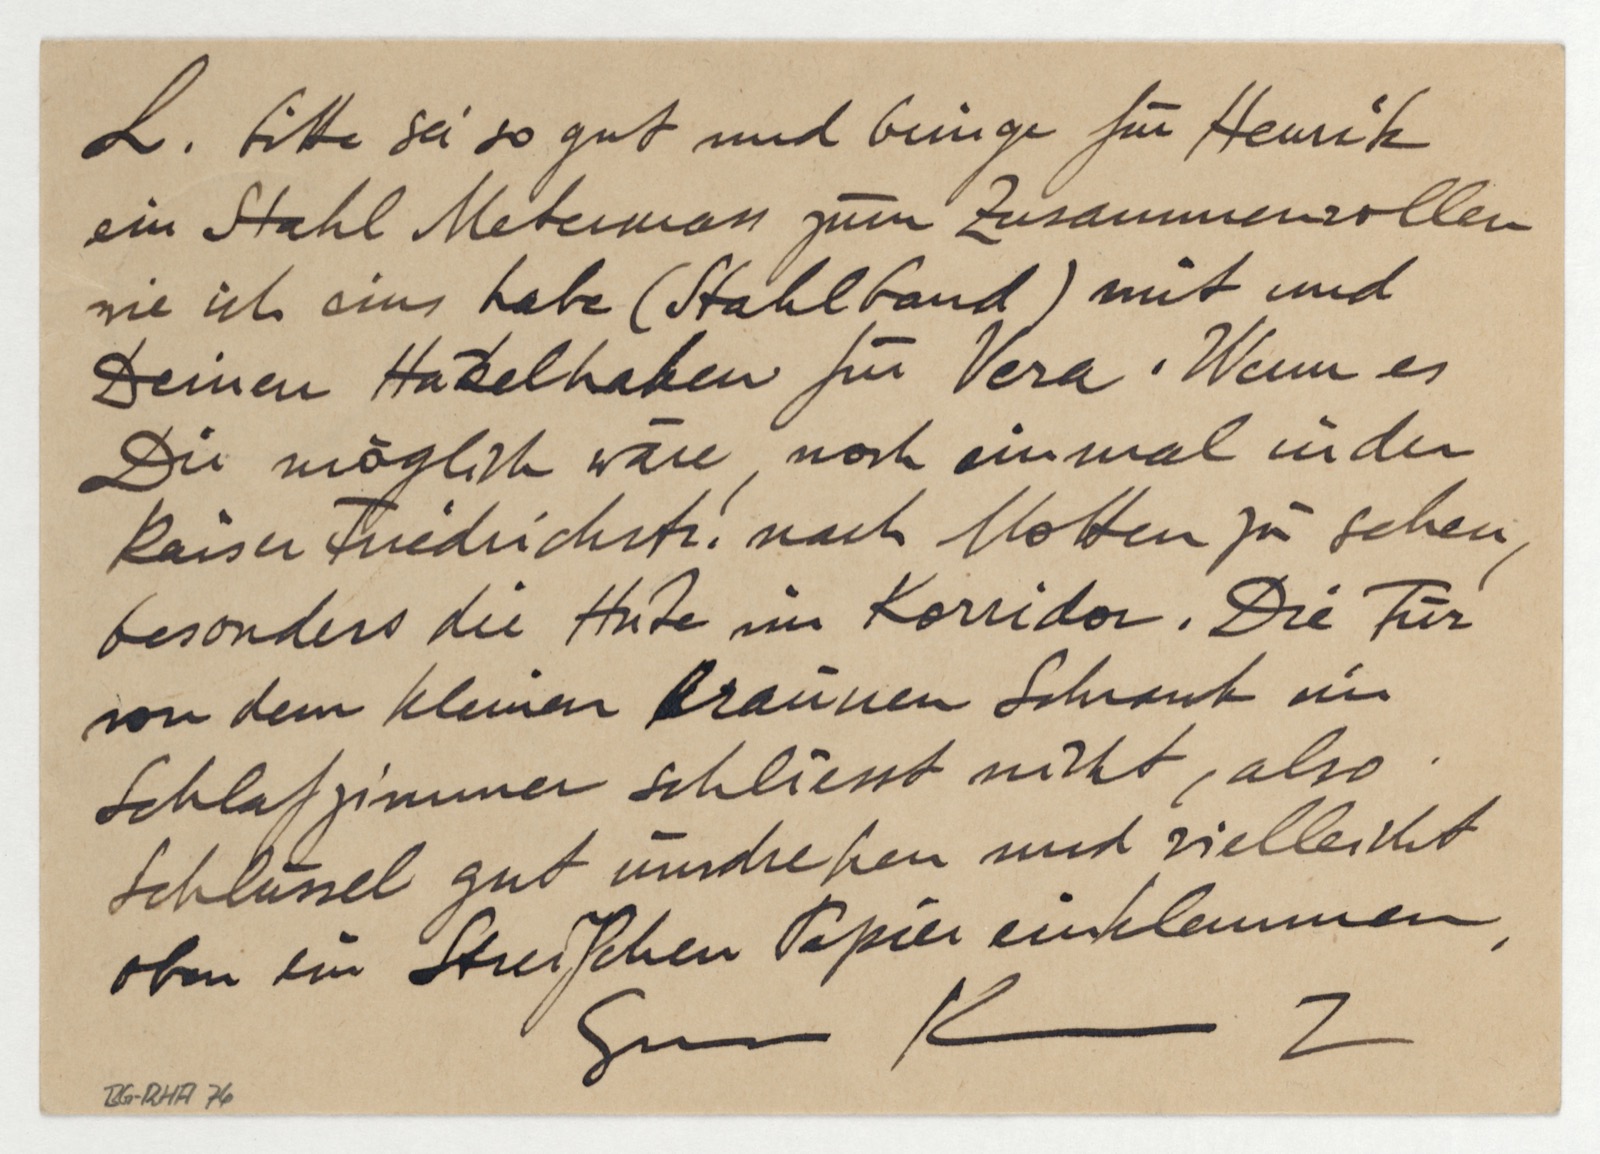 L. bitte sei so gut und bringe für Henrik
ein Stahl Metermass zum Zusammenrollen
wie ich eins habe (Stahlband) mit und
Deinen Hakelhaken für Vera. Wenn es
Dir möglich wäre, noch einmal in der
Kaiser Friedrichstr. nach Motten zu sehen,
besonders die Hüte im Korridor. Die Tür
von dem kleinen braunen Schrank im
Schlafzimmer schliesst nicht, also
Schlüssel gut umdrehen und vielleicht
oben ein Streifchen Papier einklemmen,
BG-RHA 76